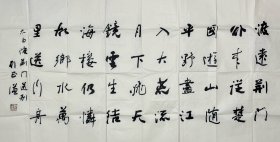 渡遠荆門
外來從楚
國遊山隨
平野盡江
入大荒流
月下飛天
鏡雲生結
海樓仍憐
故鄉水萬
里送行舟
太白渡荆門送别